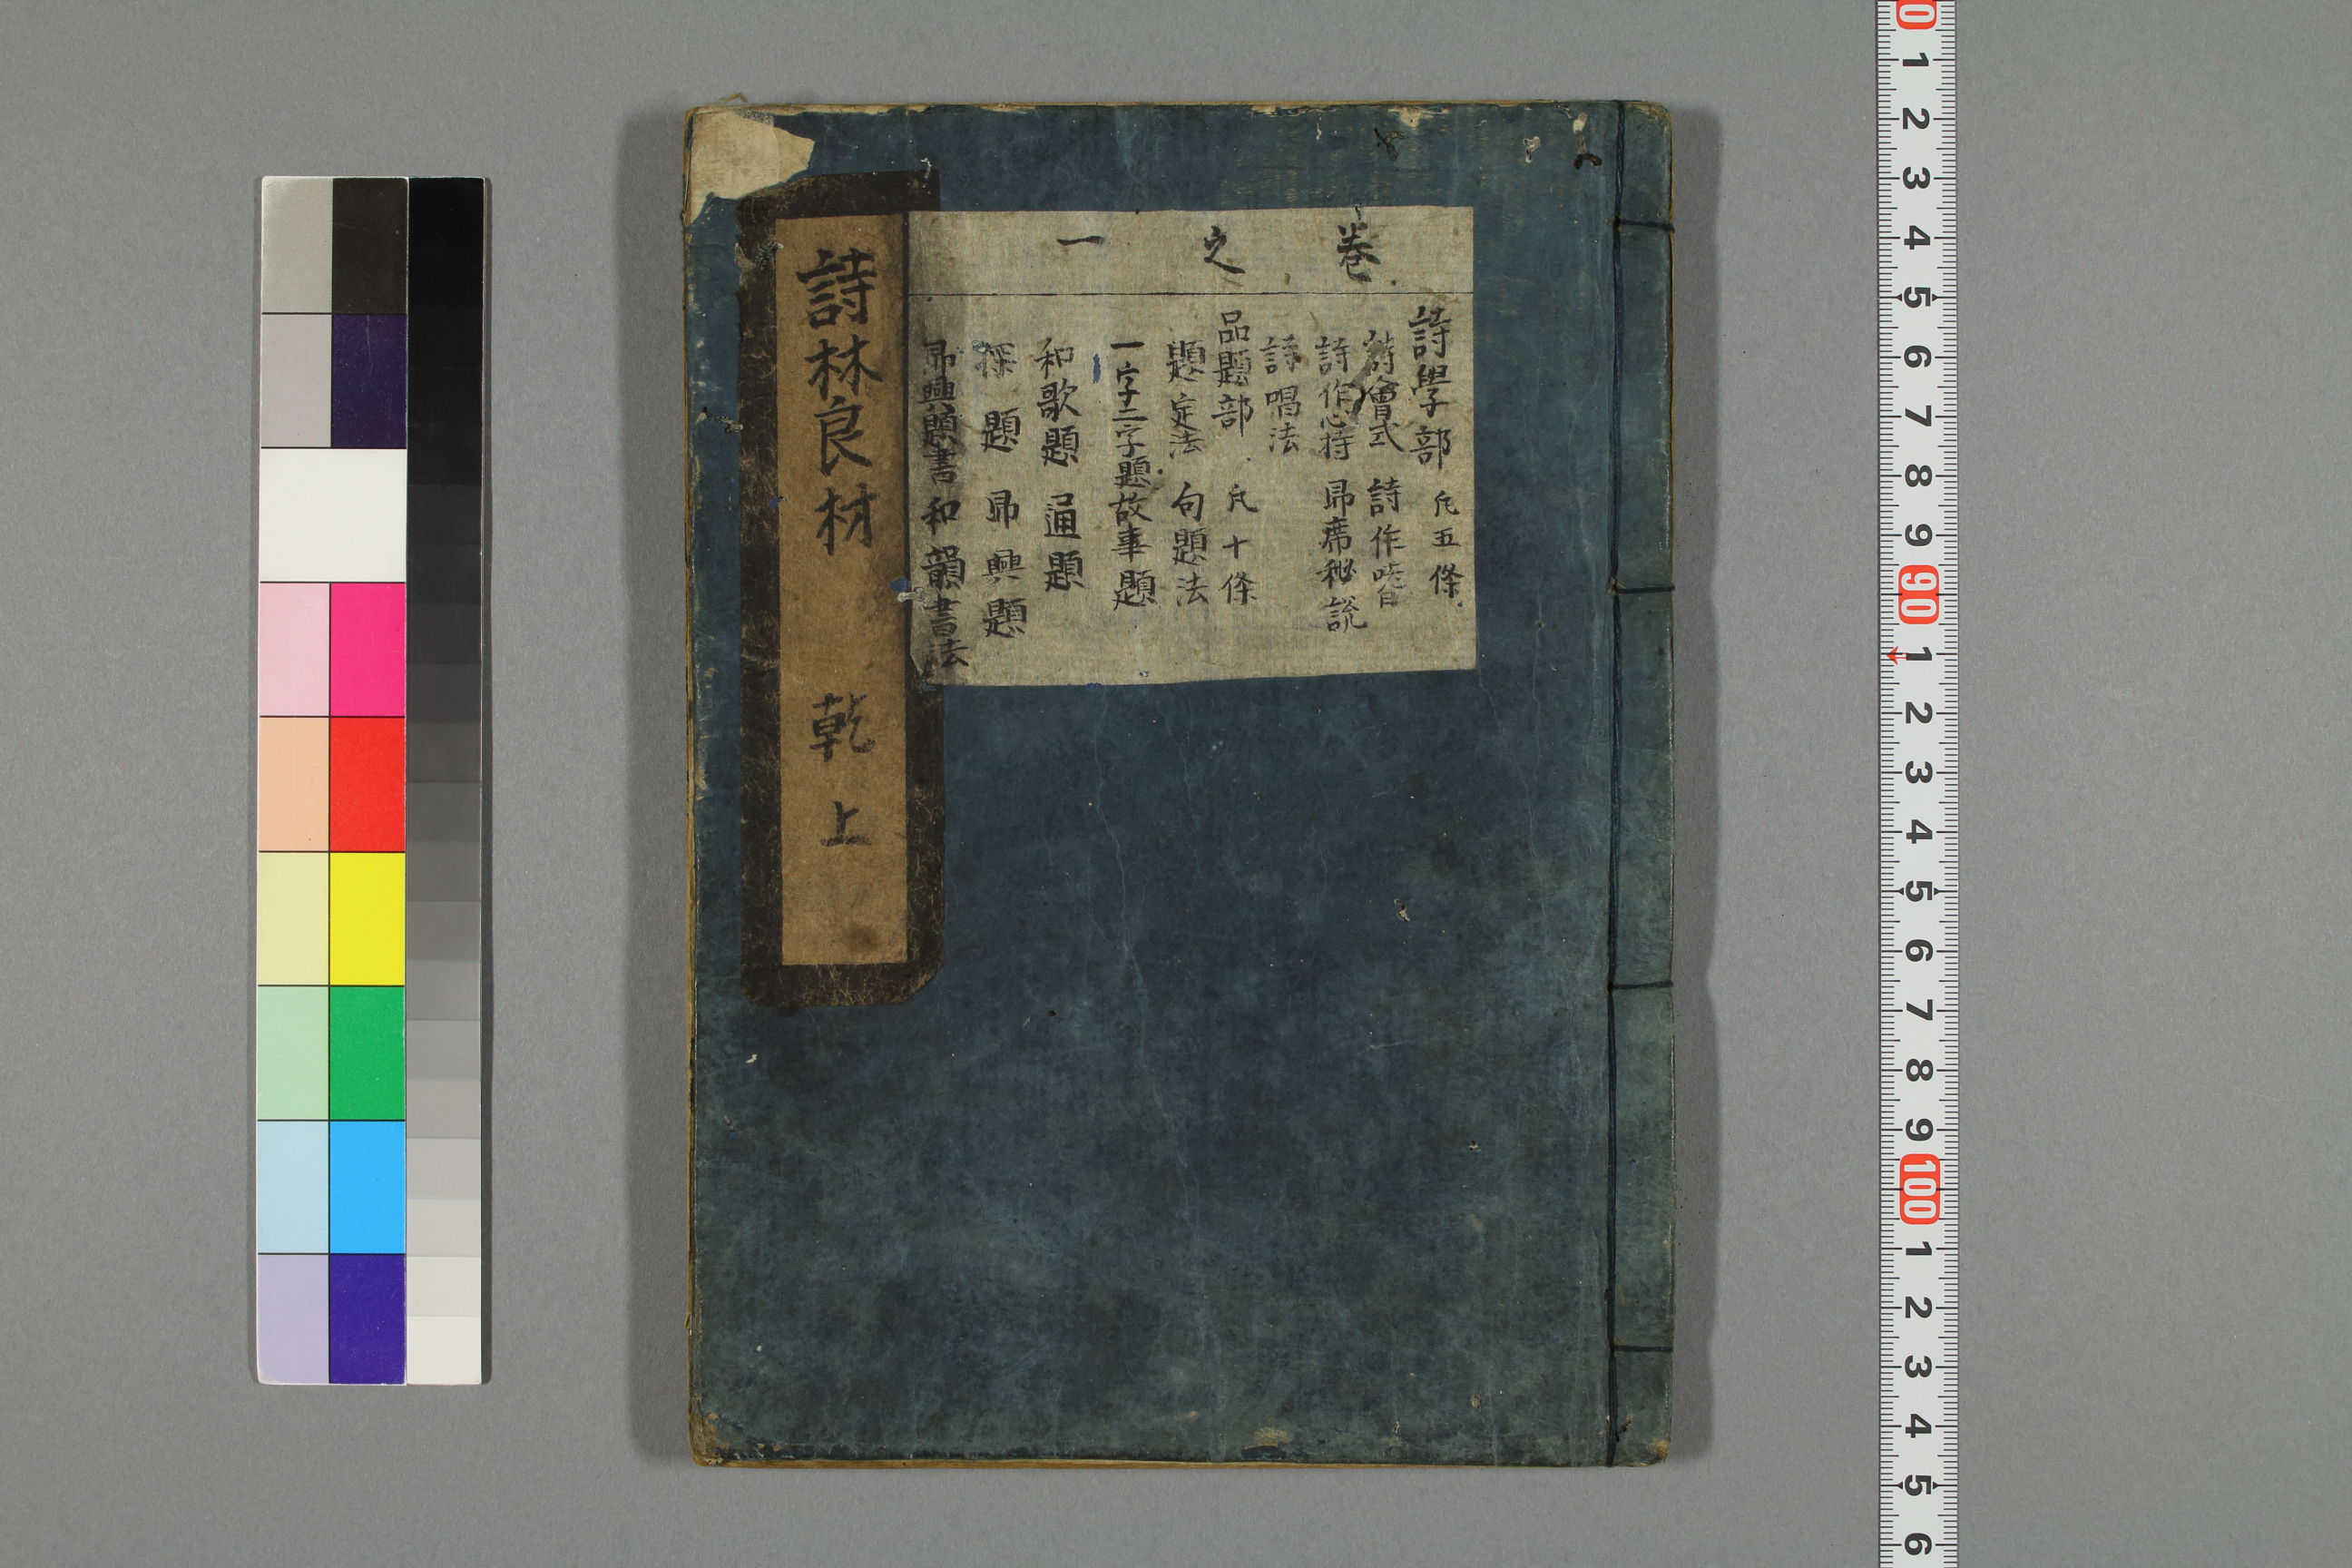 卷之一
詩學部 凡五條
詩會式 詩作
詩作心持 即席秘説
詩唱法
品題部 凡十條
題定法 句題法
一字二字題故事題
和歌題 通題
探題 即興題
即興題書 和韻書法
詩林良材 乾 上
0 1 2 3 4 5 6 7 8 9 90 1 2 3 4 5 6 7 8 9 100 1 2 3 4 5 6